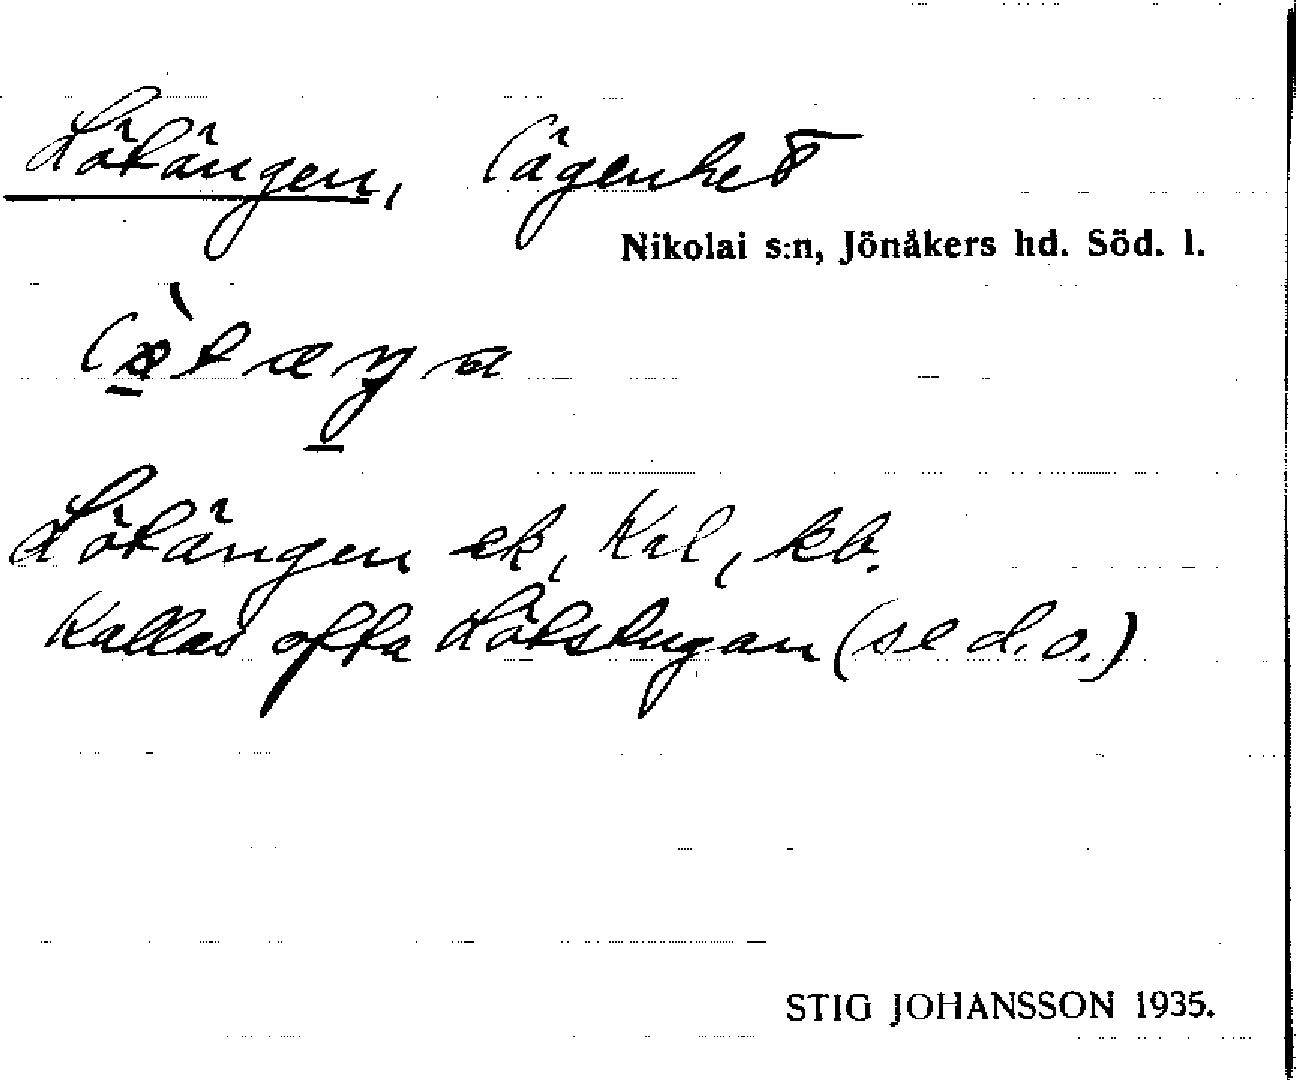 Lötängen, lägenhet
Nikolai s:n, Jönåkers hd. Söd. l.
Lötängen ek, Kal, kb.
Kallas ofta Lötstugan (se d. o.)
STIG JOHANSSON 1935.